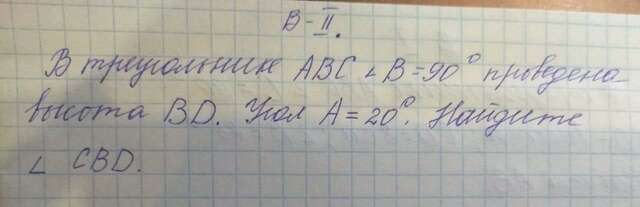 В-II.
В треугольнике ABC ∠ B=90° проведена
высота BD. Угол A=20°. Найдите
∠ CBD.